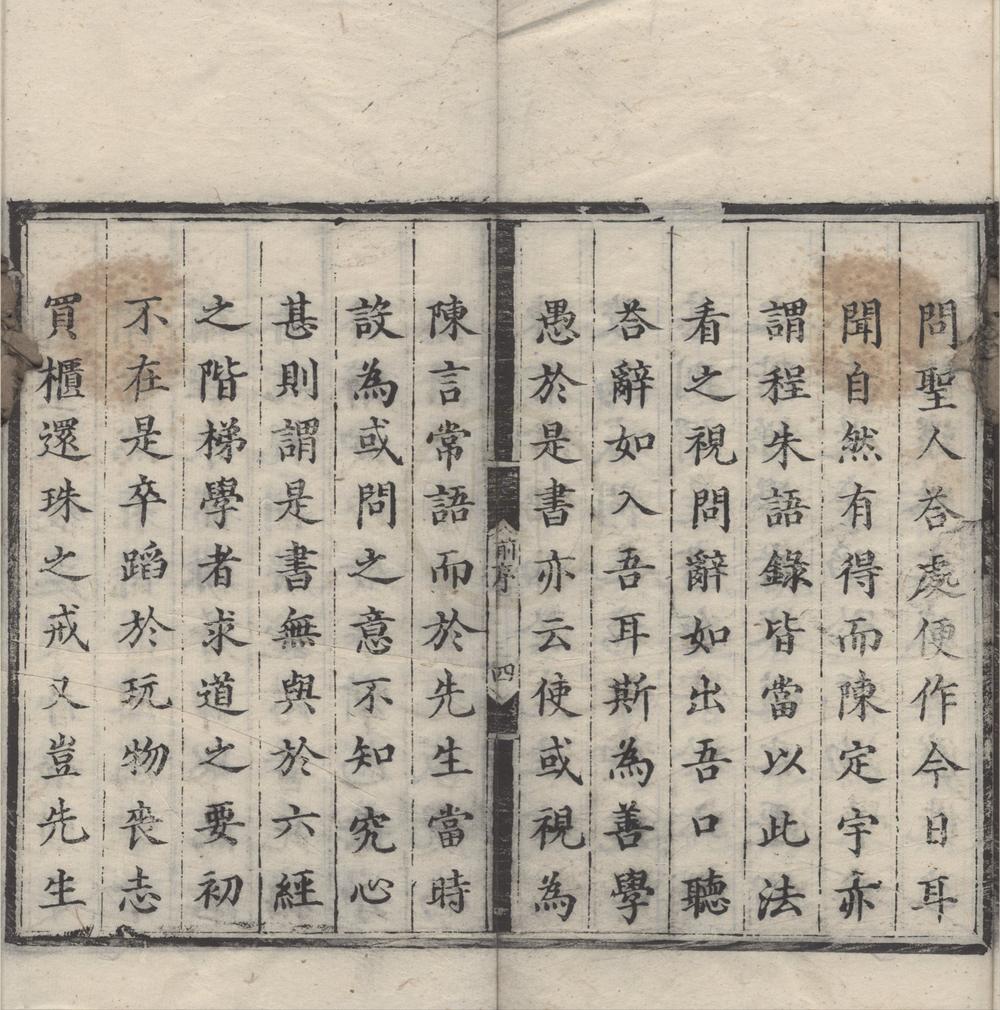 問聖人荅處便作今日耳
聞自然有得而陳定宇亦
謂程朱語錄皆當以此法
看之視問辭如出吾口聽
荅辭如入吾耳斯為善學
愚於是書亦云使或視為
前序
四
陳言常語而於先生當時
設為或問之意不知究心
甚則謂是書無與於六經
之階梯學者求道之要初
不在是卒蹈於玩物喪志
買櫃還珠之戒又豈先生